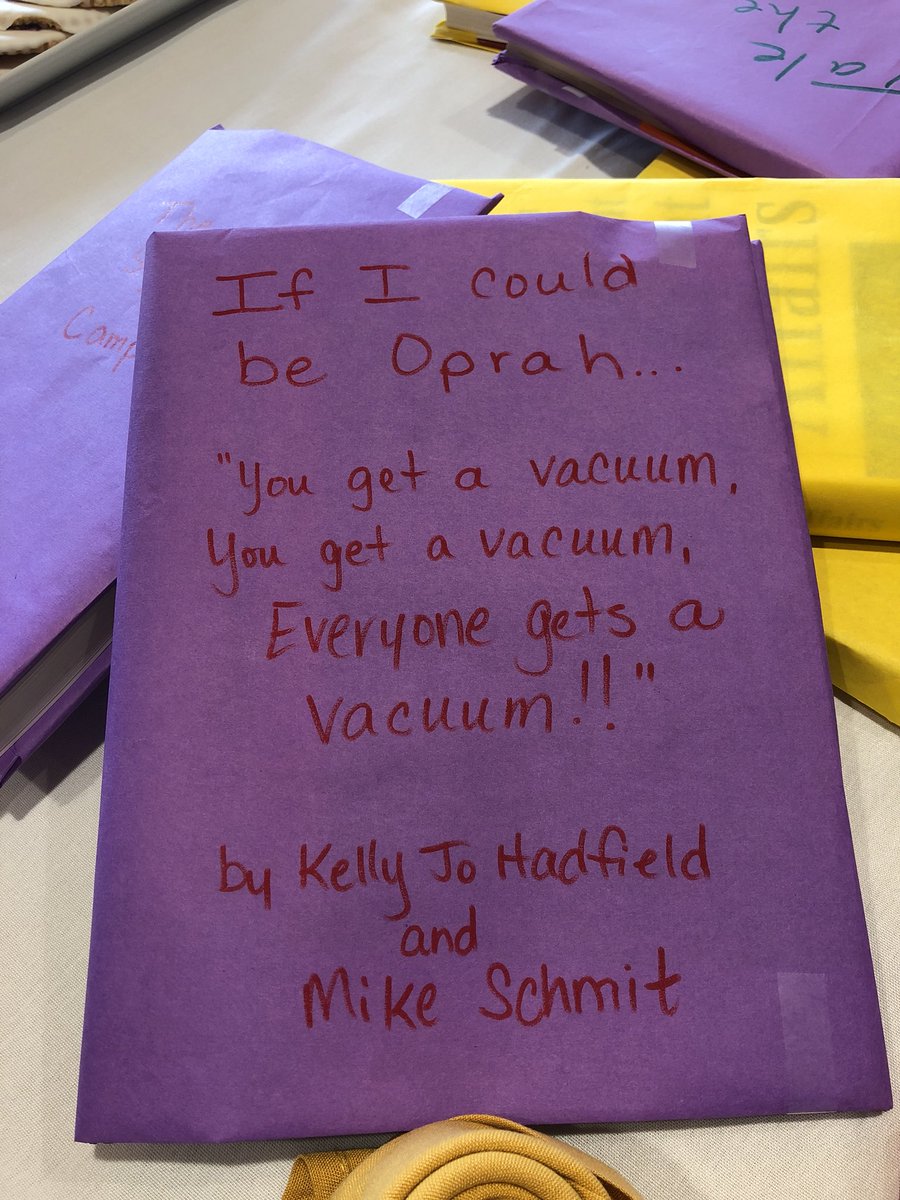 If I could
be Oprah...
"You get a vacuum,
You get a vacuum,
Everyone gets a
vacuum!!"
by Kelly Jo Hadfield
and
Mike Schmit
The
Camp
ale
the